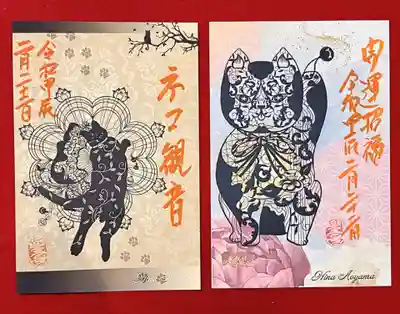 ネコ観音
令和甲辰
二月二十二日
開運招福
令和甲辰二月二十二日
Hina Aoyama